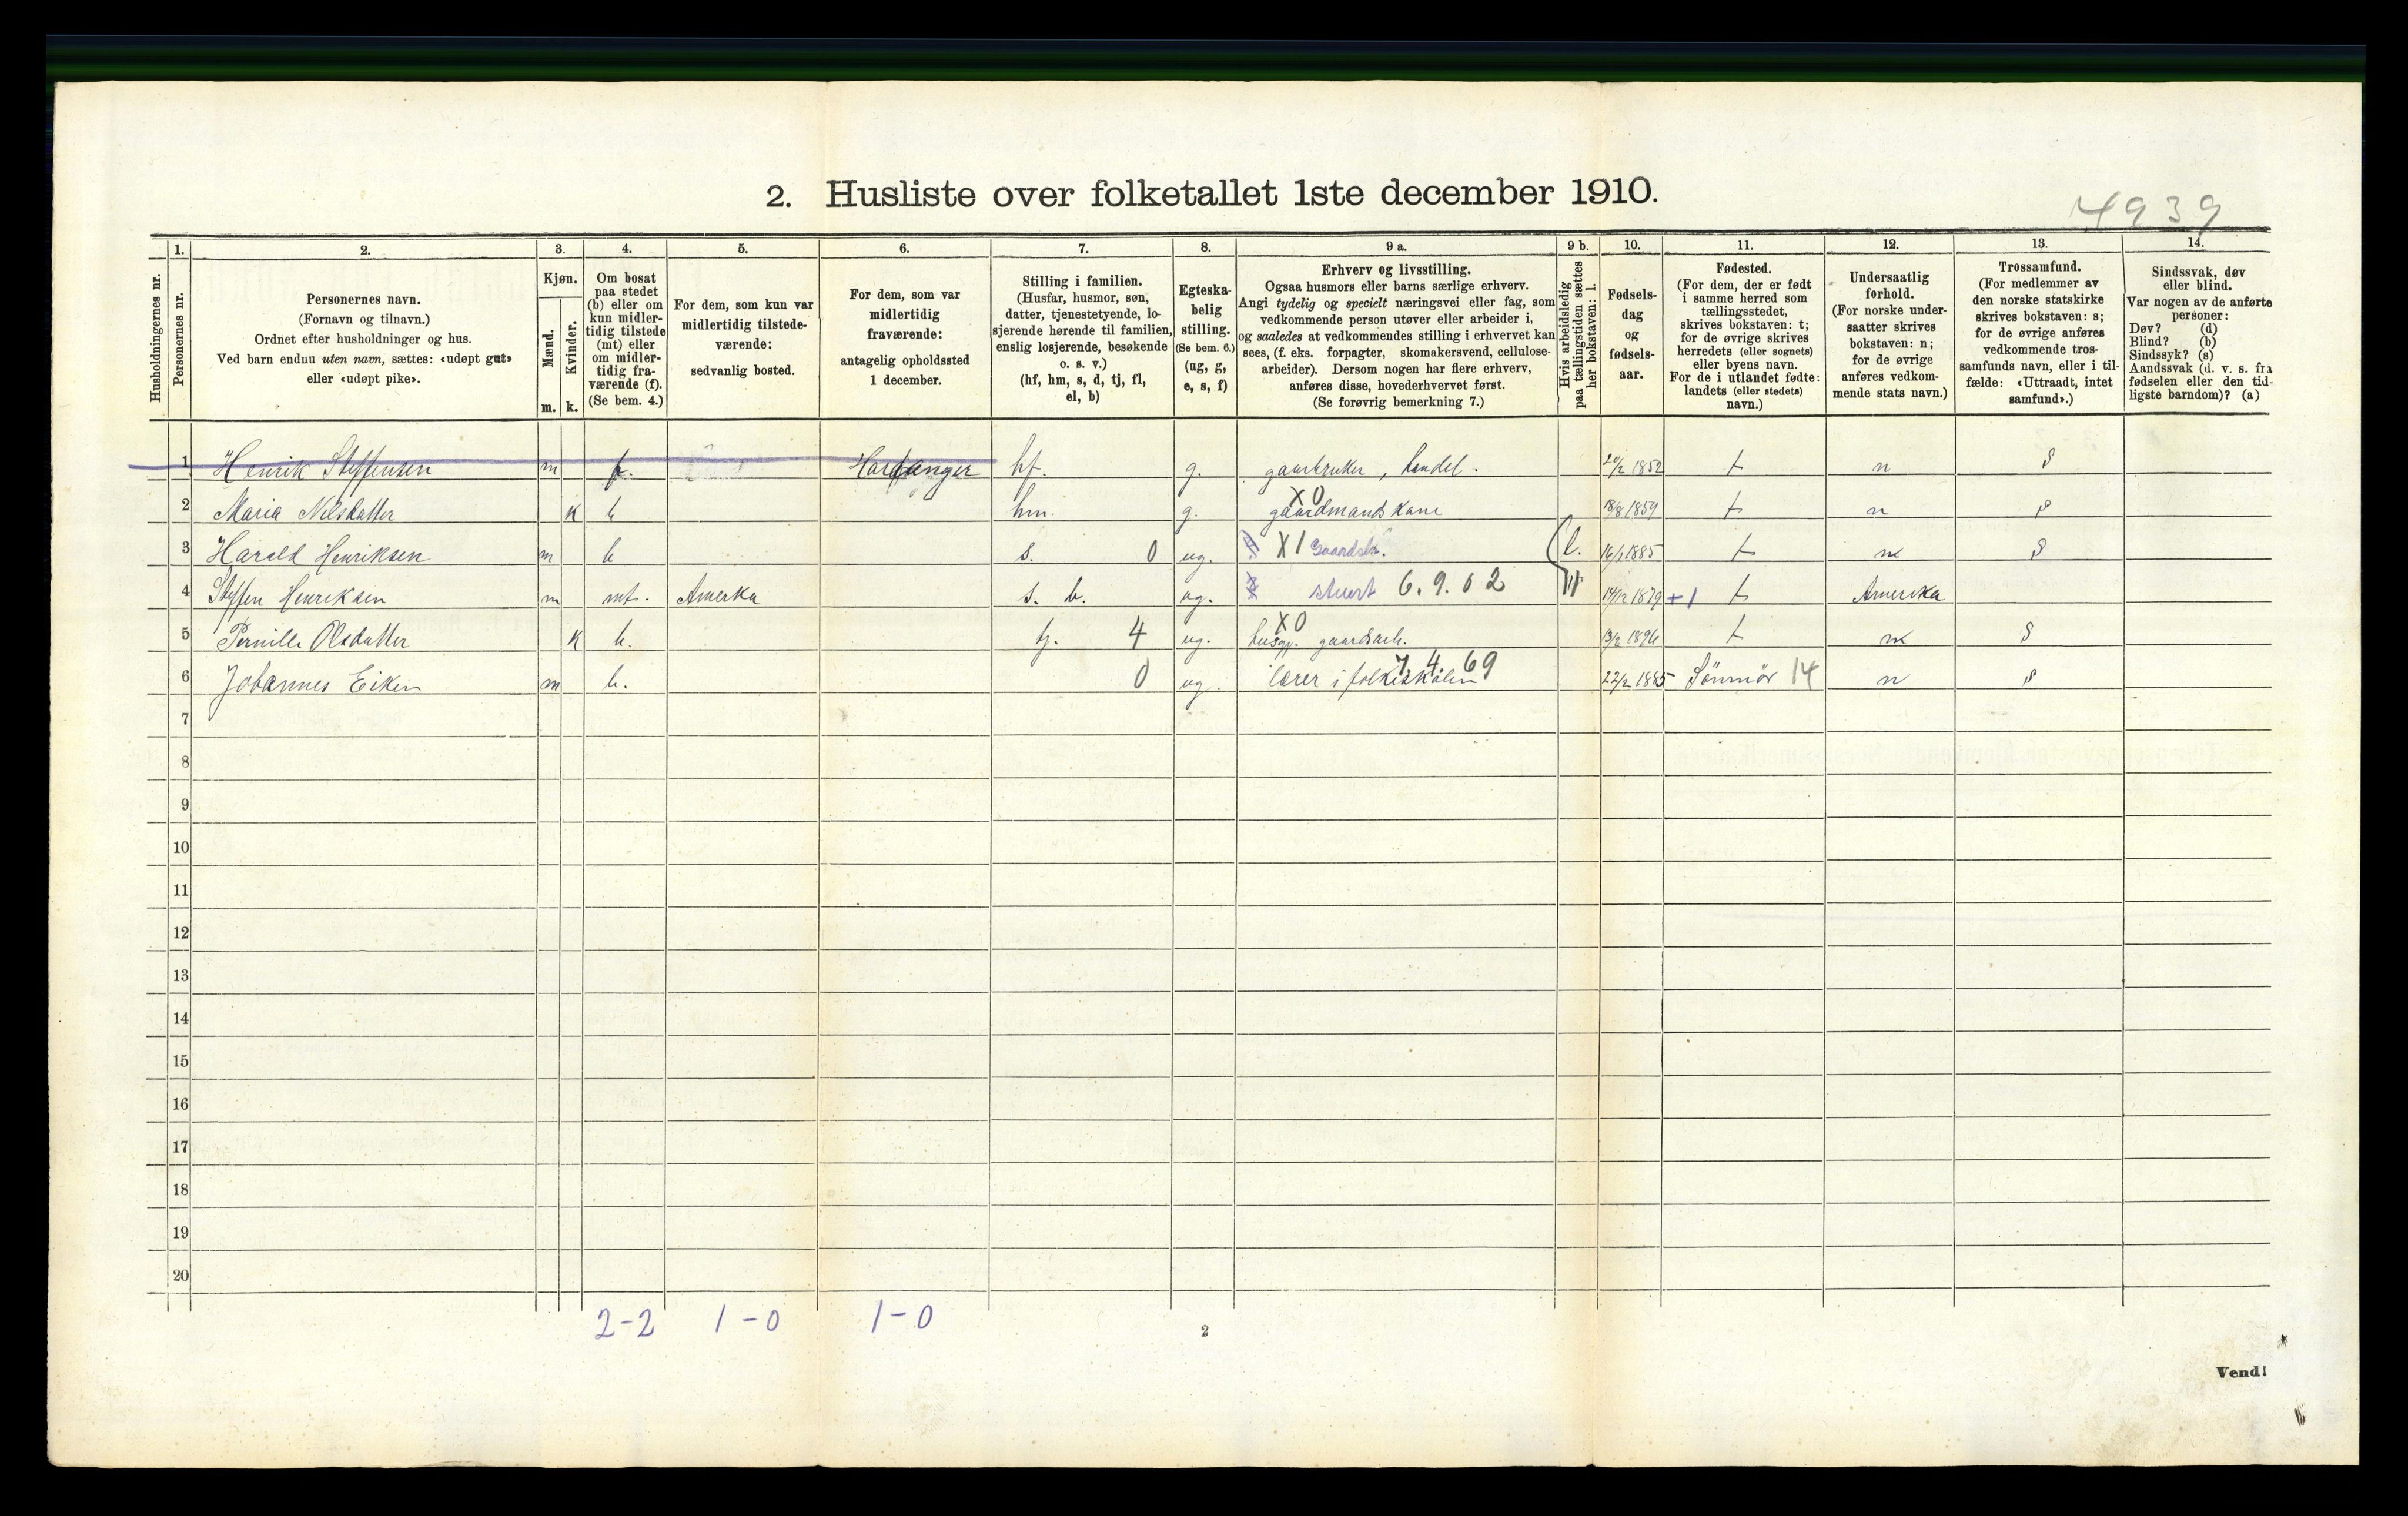 2. Husliste over folketallet 1ste december 1910.
4939
Husholdningernes nr.
1. Personernes nr.
2. Personernes navn. (Fornavn og tilnavn.) Ordnet efter husholdninger og hus. Ved barn endnu uten navn, sættes: «udøpt gut» eller «udøpt pike».
3. Kjøn. Mænd. m. Kvinder. k.
4. Om bosat paa stedet (b) eller om kun midlertidig tilstede (mt) eller om midlertidig fraværende (f). (Se bem. 4.)
5. For dem, som kun var midlertidig tilstedeværende: sedvanlig bosted.
6. For dem, som var midlertidig fraværende: antagelig opholdssted 1 december.
7. Stilling i familien. (Husfar, husmor, søn, datter, tjenestetyende, losjerende hørende til familien, enslig losjerende, besøkende o. s. v.) (hf, hm, s, d, tj, fl, el, b)
8. Egteskabelig stilling. (Se bem. 6.) (ug, g, e, s, f)
9 a. Erhverv og livsstilling. Ogsaa husmors eller barns særlige erhverv. Angi tydelig og specielt næringsvei eller fag, som vedkommende person utøver eller arbeider i, og saaledes at vedkommendes stilling i erhvervet kan sees, (f. eks. forpagter, skomakersvend, cellulosearbeider). Dersom nogen har flere erhverv, anføres disse, hovederhvervet først. (Se forøvrig bemerkning 7.)
9 b. Hvis arbeidsledig paa tællingstiden sættes her bokstaven: l.
10. Fødselsdag og fødselsaar.
11. Fødested. (For dem, der er født i samme herred som tællingsstedet, skrives bokstaven: t; for de øvrige skrives herredets (eller sognets) eller byens navn. For de i utlandet fødte: landets (eller stedets) navn.)
12. Undersaatlig forhold. (For norske undersaatter skrives bokstaven: n; for de øvrige anføres vedkommende stats navn.)
13. Trossamfund. (For medlemmer av den norske statskirke skrives bokstaven: s; for de øvrige anføres vedkommende trossamfunds navn, eller i tilfælde: «Uttraadt, intet samfund».)
14. Sindssvak, døv eller blind. Var nogen av de anførte personer: Døv? (d) Blind? (b) Sindssyk? (s) Aandssvak (d. v. s. fra fødselen eller den tidligste barndom)? (a)
1 Henrik Steffensen m f. Hardanger hf. g. gaardbruker, handel. 1852 t n S
2 Maria Nilsdatter k b hm. g. X0 gaardmandskone 18/8 1859 t n s
3 Harald Henriksen m b s. 0 ug. X1 Gaardsb. l. 1885 t n S
4 Steffen Henriksen m mt. Amerka s. b. ug. stuert 6.9.02 1879 +1 t Amerika
5 Pernille Olsdatter k b. tj. 4 ug. X0 husgj. gaardsarb. 1896 t n S
6 Johannes Eiken m b. 0 ug. lærer i folkeskolen 7.4.69 22/2 1885 Sönmör 14 n s
7
8
9
10
11
12
13
14
15
16
17
18
19
20
2-2 1-0 1-0
2
Vend!